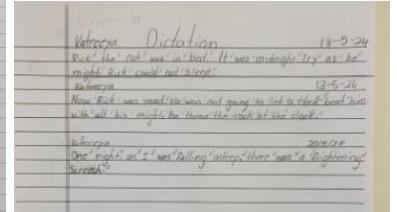 Katreeya Dictation 13-5-24
Rick the rat was in bed. It was midnight try as he
might, Rick could not sleep.
Katreeya 13-5-24
Now Rick was mad! He was not going to let a beat him
with all his might, he threw the rock at the clock.
Katreeya
One night, as I was falling asleep, there was a frightening
screech